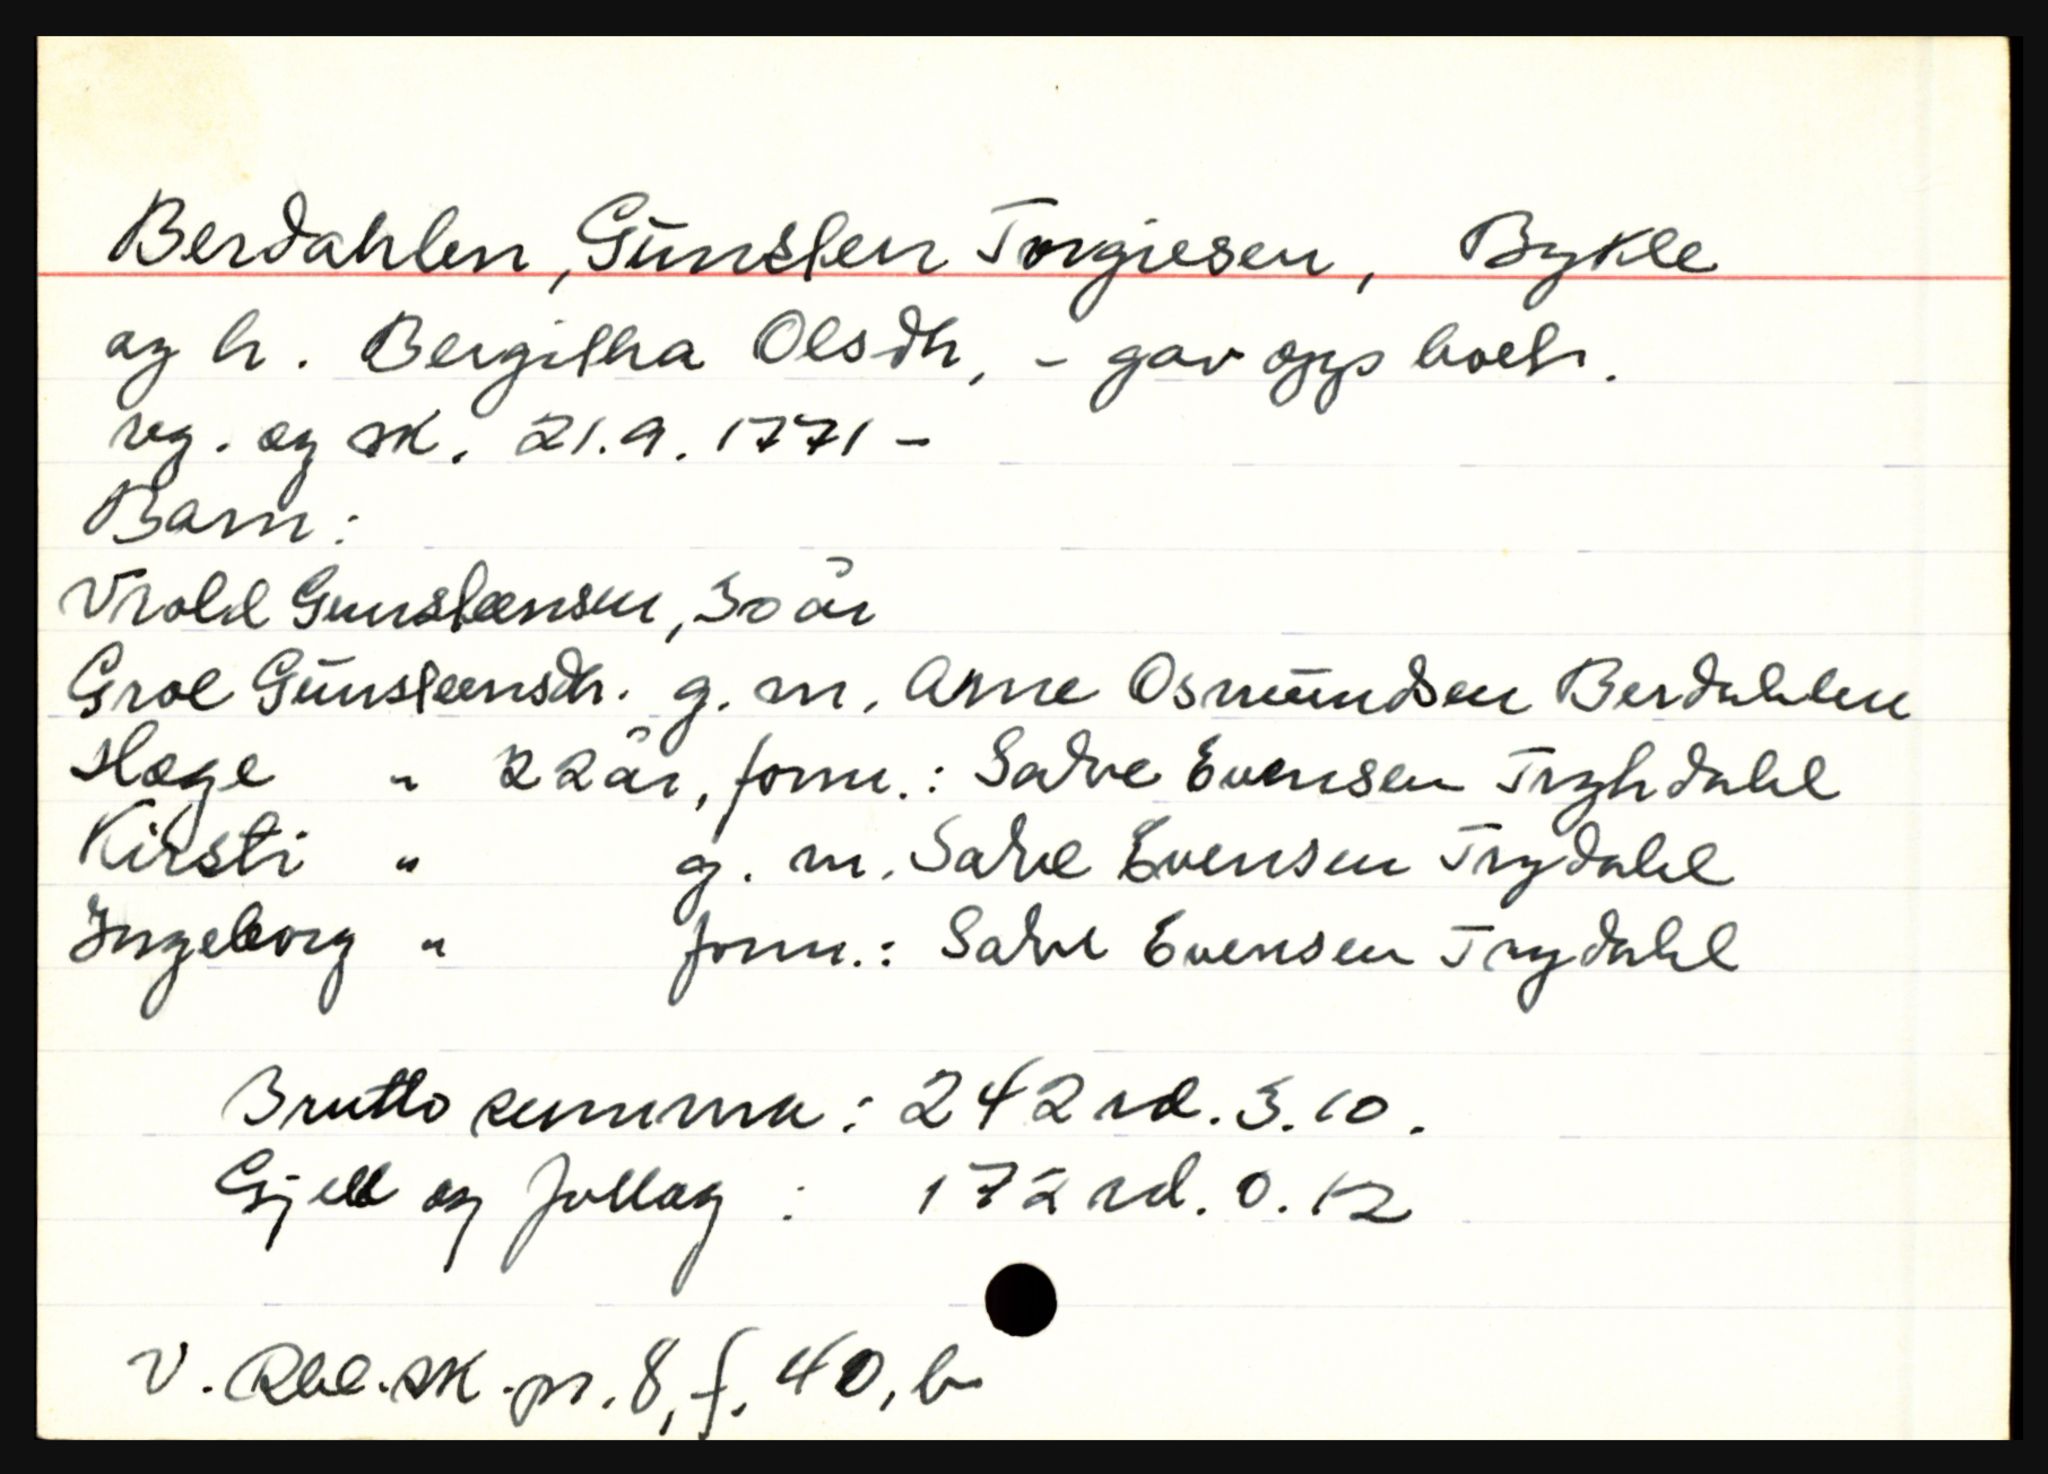 Berdahlen, Gunsten Torgiesen, Bykle
og h. Bergitha Olsdtr, - gav opp boet.
rg. og sk. 21.9.1771 -
Barn:
Vrold Gunstensen, 30 år
Groe Gunsteensdtr. g. m. Arne Osmundsen Berdahlen
Hæge " 22 år, form.: Salve Evensen Tryhdahl
Kirsti " g. m. Salve Evensen Trydahl
Ingeborg " form.: Salve Evensen Trydahl
Brutto summa: 242 rd. 3. 10.
Gjeld og follag : 172 rd. 0. 12
V. Rbl. sk. pr. 8, f. 40, b